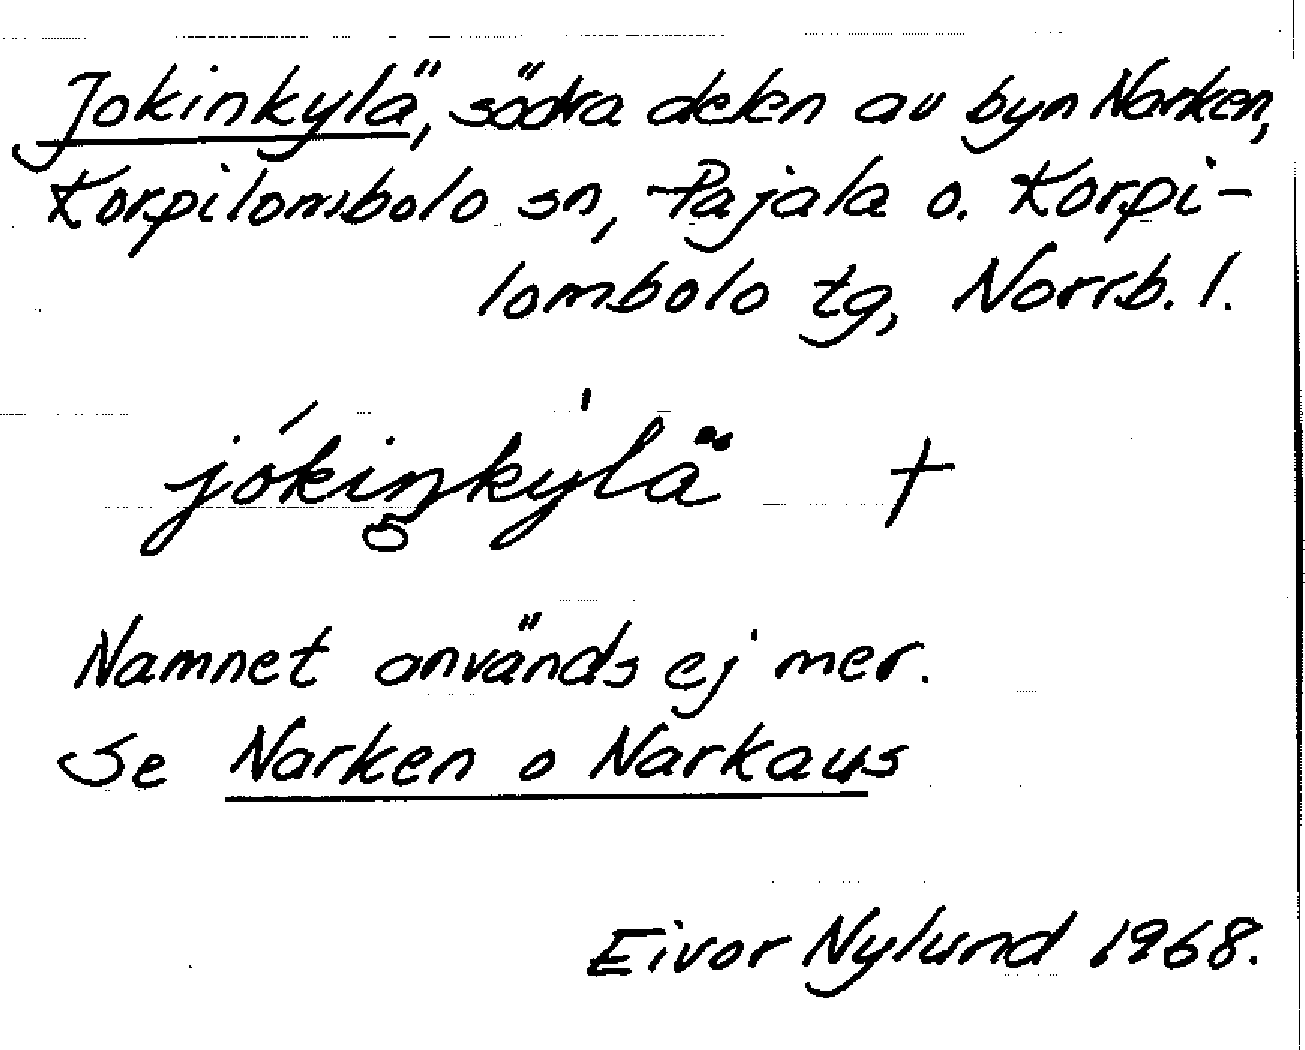 Jokinkylä, södra delen av byn Narken,
Korpilombolo sn, Pajala o. Korpi-
lombolo tg, Norrb. l.
jóki̥ŋkylä †
Namnet används ej mer.
Se Narken o Narkaus
Eivor Nylund 1968.